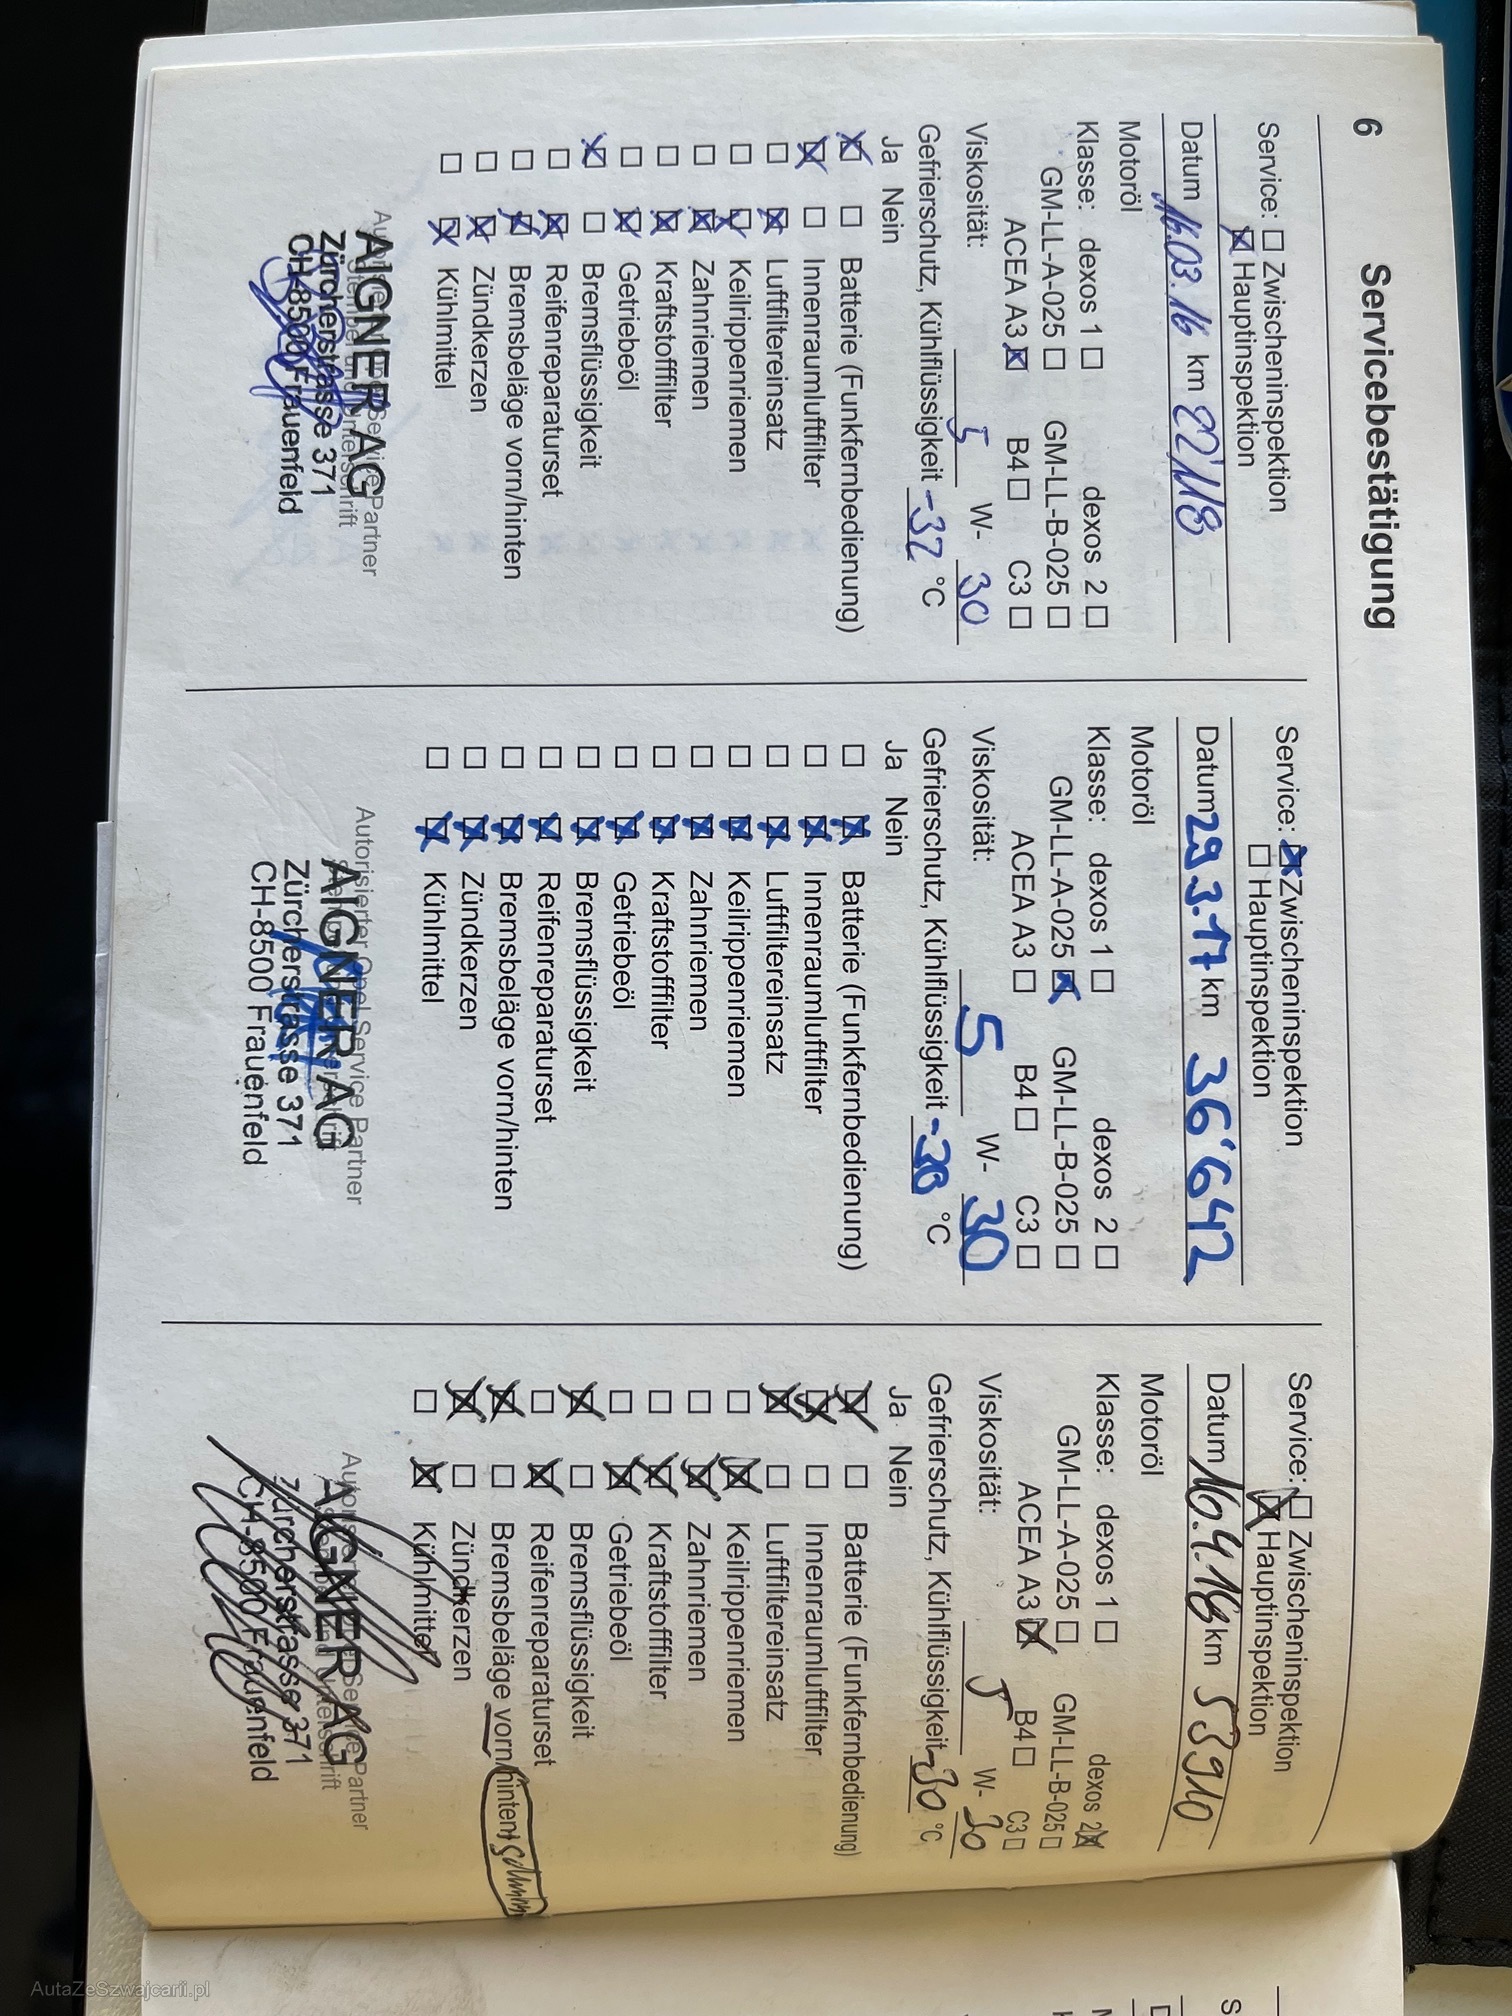 6 Servicebestätigung
Service: ☐ Zwischeninspektion
☒ Hauptinspektion
Datum 16.03.16 km 22'118
Motoröl
Klasse: dexos 1 ☐ dexos 2 ☐
GM-LL-A-025 ☐ GM-LL-B-025 ☐
ACEA A3 ☒ B4 ☐ C3 ☐
Viskosität: 5 W- 30
Gefrierschutz, Kühlflüssigkeit -37 °C
Ja Nein
☒ ☐ Batterie (Funkfernbedienung)
☒ ☐ Innenraumluftfilter
☐ ☒ Luftfiltereinsatz
☐ ☒ Keilrippenriemen
☐ ☒ Zahnriemen
☐ ☒ Kraftstofffilter
☐ ☒ Getriebeöl
☒ ☐ Bremsflüssigkeit
☐ ☒ Reifenreparaturset
☐ ☒ Bremsbeläge vorn/hinten
☐ ☒ Zündkerzen
☐ ☒ Kühlmittel
AIGNER AG
Zürcherstrasse 371
CH-8500 Frauenfeld
Service: ☒ Zwischeninspektion
☐ Hauptinspektion
Datum 29.3.17 km 36'642
Motoröl
Klasse: dexos 1 ☐ dexos 2 ☐
GM-LL-A-025 ☒ GM-LL-B-025 ☐
ACEA A3 ☐ B4 ☐ C3 ☐
Viskosität: 5 W- 30
Gefrierschutz, Kühlflüssigkeit °C
Ja Nein
☐ ☒ Batterie (Funkfernbedienung)
☐ ☒ Innenraumluftfilter
☐ ☒ Luftfiltereinsatz
☐ ☒ Keilrippenriemen
☐ ☒ Zahnriemen
☐ ☒ Kraftstofffilter
☐ ☒ Getriebeöl
☐ ☒ Bremsflüssigkeit
☐ ☒ Reifenreparaturset
☐ ☒ Bremsbeläge vorn/hinten
☐ ☒ Zündkerzen
☐ ☒ Kühlmittel
Autorisierter Opel Service Partner
AIGNER AG
Zürcherstrasse 371
CH-8500 Frauenfeld
Service: ☐ Zwischeninspektion
☒ Hauptinspektion
Datum 16.4.18 km 53910
Motoröl
Klasse: dexos 1 ☐ dexos 2 ☒
GM-LL-A-025 ☐ GM-LL-B-025 ☐
ACEA A3 ☒ B4 ☐ C3 ☐
Viskosität: 5 W- 30
Gefrierschutz, Kühlflüssigkeit -30 °C
Ja Nein
☒ ☐ Batterie (Funkfernbedienung)
☒ ☐ Innenraumluftfilter
☒ ☐ Luftfiltereinsatz
☐ ☒ Keilrippenriemen
☐ ☒ Zahnriemen
☐ ☒ Kraftstofffilter
☐ ☒ Getriebeöl
☒ ☐ Bremsflüssigkeit
☐ ☒ Reifenreparaturset
☒ ☐ Bremsbeläge vorn/hinten
☒ ☐ Zündkerzen
☐ ☒ Kühlmittel
AIGNER AG
Zürcherstrasse 371
CH-8500 Frauenfeld
AutaZeSzwajcarii.pl